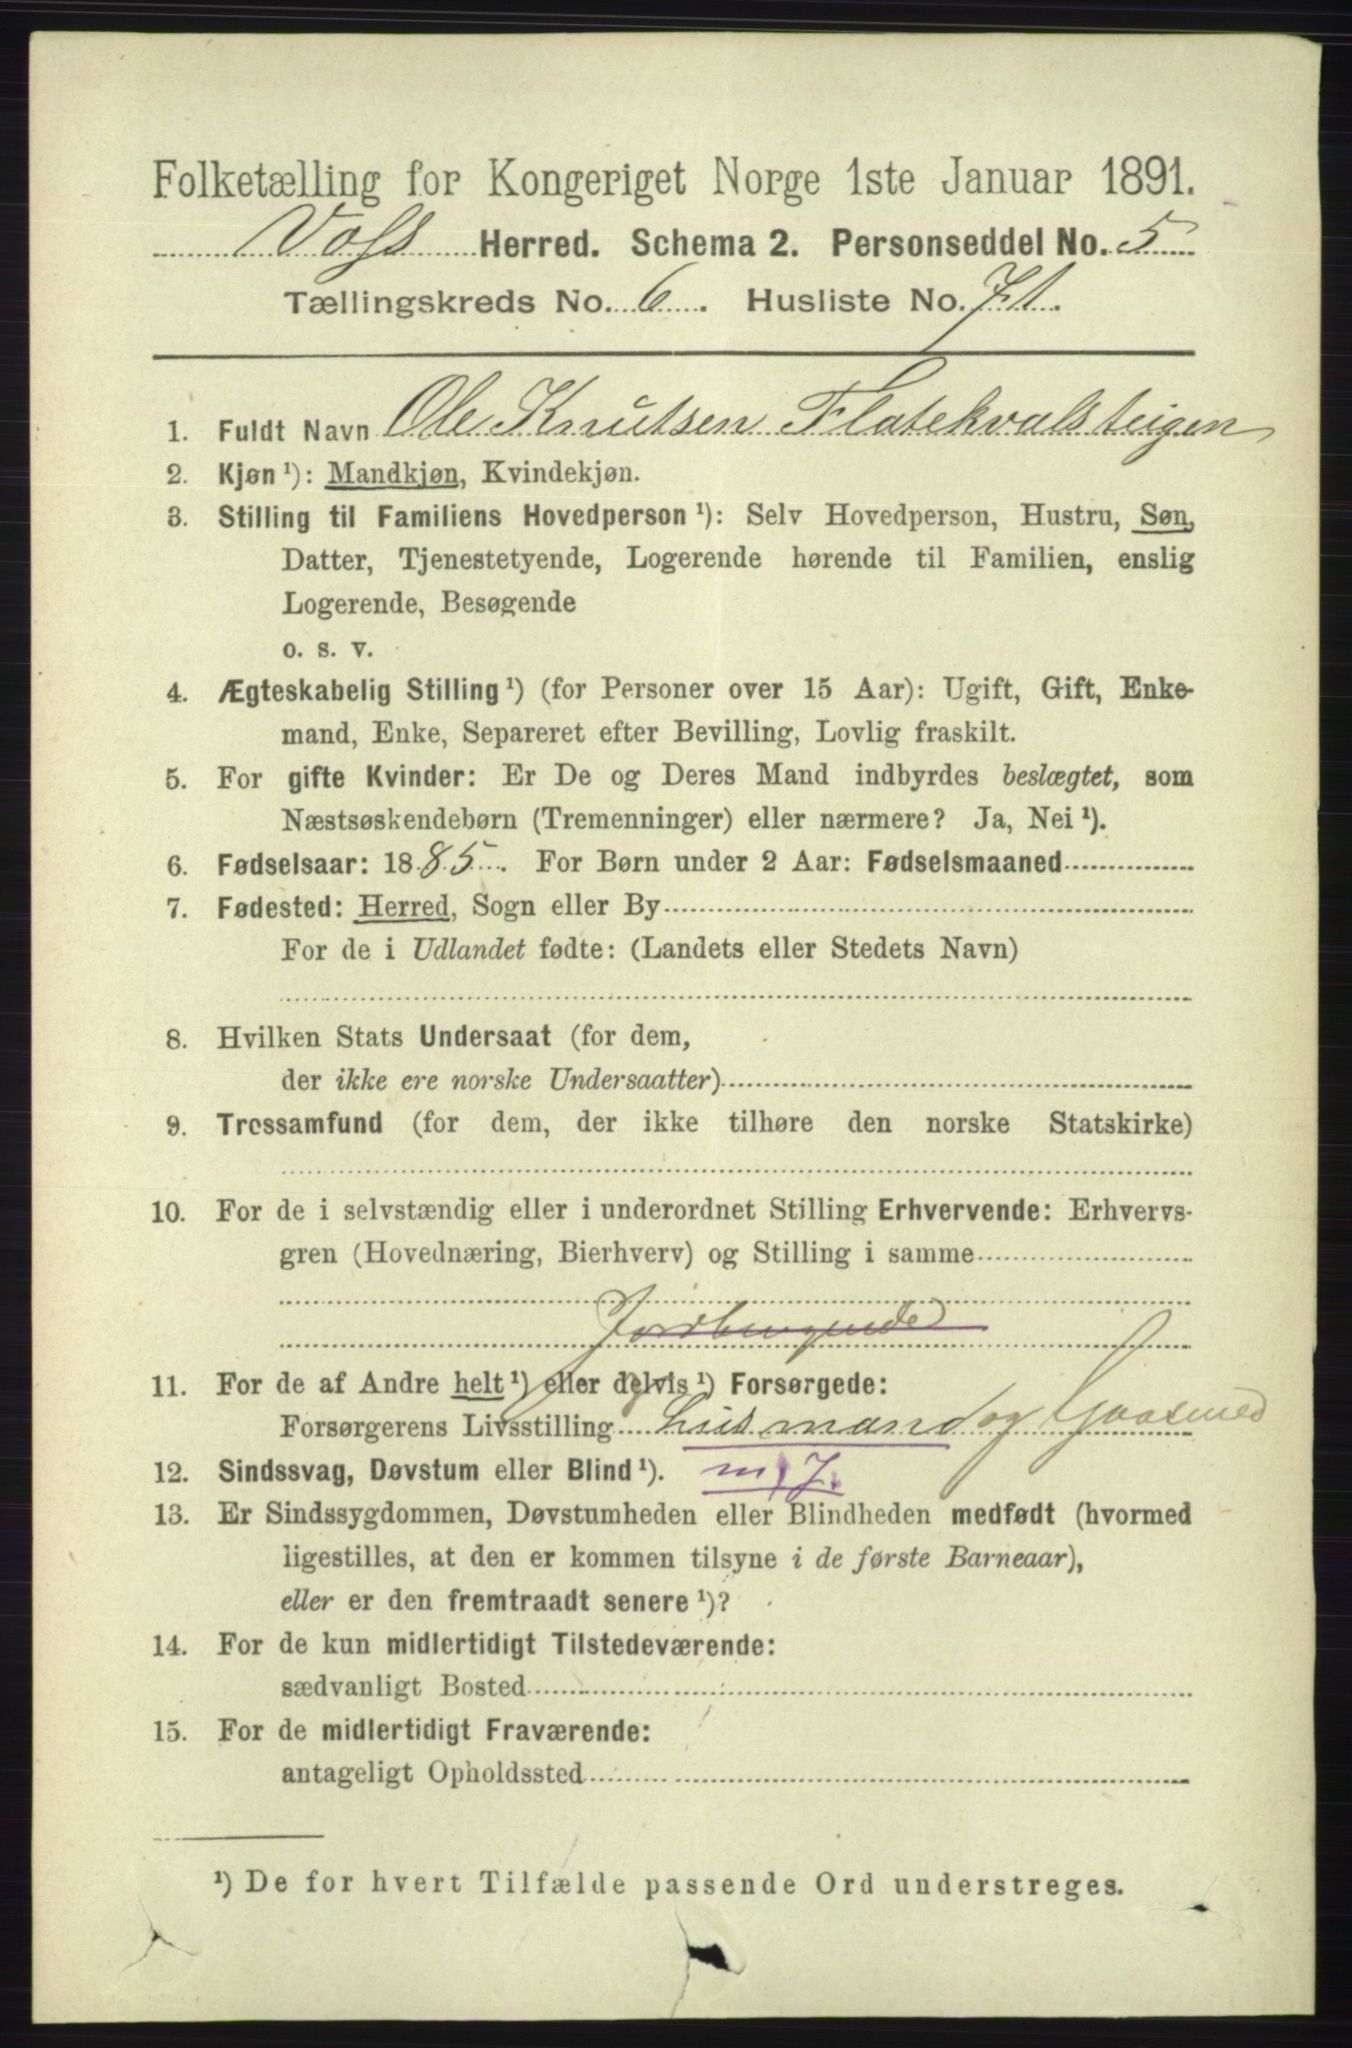 Folketælling for Kongeriget Norge 1ste Januar 1891.
Voss Herred. Schema 2. Personseddel No. 5
Tællingskreds No. 6. Husliste No. 71.
1. Fuldt Navn Ole Knutsen Flatekvalsteigen
2. Kjøn ¹): Mandkjøn, Kvindekjøn.
3. Stilling til Familiens Hovedperson ¹): Selv Hovedperson, Hustru, Søn,
Datter, Tjenestetyende, Logerende hørende til Familien, enslig
Logerende, Besøgende
o. s. v.
4. Ægteskabelig Stilling ¹) (for Personer over 15 Aar): Ugift, Gift, Enke-
mand, Enke, Separeret efter Bevilling, Lovlig fraskilt.
5. For gifte Kvinder: Er De og Deres Mand indbyrdes beslægtet, som
Næstsøskendebørn (Tremenninger) eller nærmere? Ja, Nei ¹).
6. Fødselsaar: 1885. For Børn under 2 Aar: Fødselsmaaned
7. Fødested: Herred, Sogn eller By
For de i Udlandet fødte: (Landets eller Stedets Navn)
8. Hvilken Stats Undersaat (for dem,
der ikke ere norske Undersaatter)
9. Trossamfund (for dem, der ikke tilhøre den norske Statskirke)
10. For de i selvstændig eller i underordnet Stilling Erhvervende: Erhvervs-
gren (Hovednæring, Bierhverv) og Stilling i samme
11. For de af Andre helt ¹) eller delvis ¹) Forsørgede:
Forsørgerens Livsstilling Husmand og
12. Sindssvag, Døvstum eller Blind ¹). m J.
13. Er Sindssygdommen, Døvstumheden eller Blindheden medfødt (hvormed
ligestilles, at den er kommen tilsyne i de første Barneaar),
eller er den fremtraadt senere ¹)?
14. For de kun midlertidigt Tilstedeværende:
sædvanligt Bosted
15. For de midlertidigt Fraværende:
antageligt Opholdssted
¹) De for hvert Tilfælde passende Ord understreges.